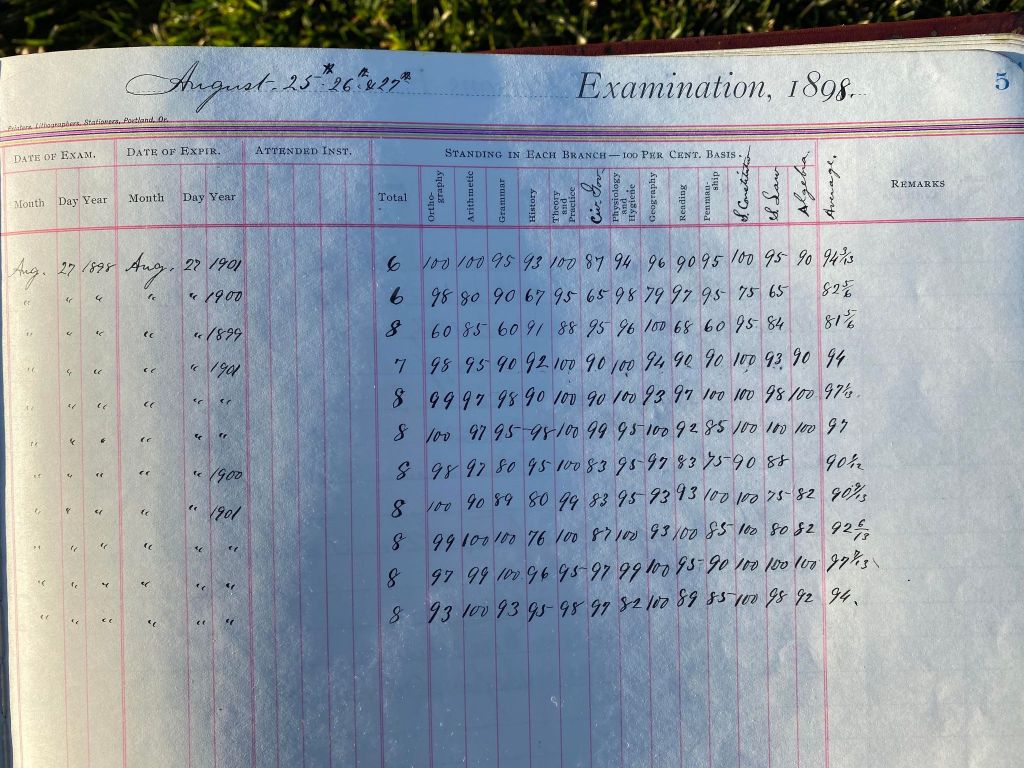 August 25th 26th & 27th Examination, 1898. 5
Printers, Lithographers, Stationers, Portland, Or.
DATE OF EXAM. DATE OF EXPIR. ATTENDED INST. STANDING IN EACH BRANCH—100 PER CENT. BASIS. REMARKS
Month Day Year Month Day Year Total Orthography Arithmetic Grammar History Theory and Practice Civ. Gov Physiology and Hygiene Geography Reading Penmanship S. Law Algebra Average.
Aug. 27 1898 Aug. 27 1901 6 100 100 95 93 100 87 94 96 90 95 100 95 90 94 3/13
" " " " " 1900 6 98 80 90 67 95 65 98 79 97 95 75 65 82 5/6
" " " " " 1899 8 60 85 60 91 88 95 96 100 68 60 95 84 81 5/6
" " " " " 1901 7 98 95 90 92 100 90 100 94 90 90 100 93 90 94
" " " " " " 8 99 97 98 90 100 90 100 93 97 100 100 98 100 97 1/13
" " " " " " 8 100 97 95 98 100 99 95 100 92 85 100 100 100 97
" " " " " 1900 8 98 97 80 95 100 83 95 97 83 75 90 88 90
" " " " " 1901 8 100 90 89 80 99 83 95 93 93 100 100 75 82 90 9/13
" " " " " " 8 99 100 100 76 100 87 100 93 100 85 100 80 82 92 6/13
" " " " " " 8 97 99 100 96 95 97 99 100 95 90 100 100 100 97
" " " " " " 8 93 100 93 95 98 97 82 100 89 85 100 98 92 94.